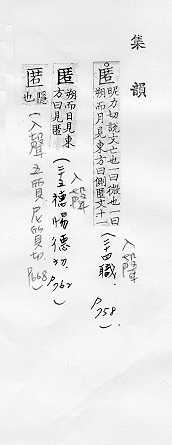 集韻
匿 昵力切說文亡也一曰微也一曰
朔而月見東方曰側匿文十一
入聲
(二十四職.
P758).
匿 朔而月見東
方曰見匿
入聲
(二五德惕德切.
P762)
匿 隱
也
(入聲五質尼質切.
P668)